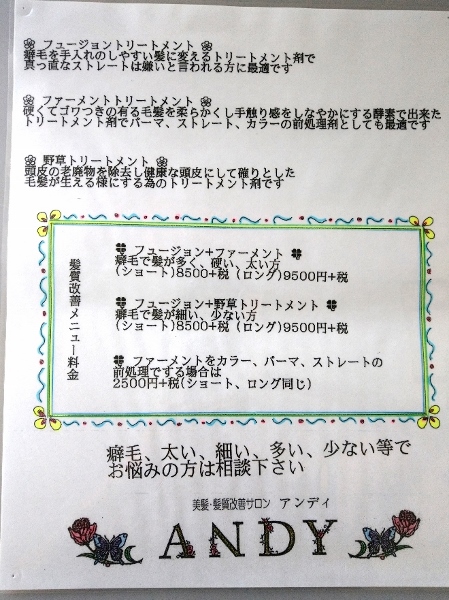 フュージョントリートメント
癖毛を手入れのしやすい髪に変えるトリートメント剤で
真っ直なストレートは嫌いと言われる方に最適です
ファーメントトリートメント
硬くてゴワつきの有る毛髪を柔らかくし手触り感をしなやかにする酵素で出来た
トリートメント剤でパーマ、ストレート、カラーの前処理剤としても最適です
野草トリートメント
頭皮の老廃物を除去し健康な頭皮にして確りとした
毛髪が生える様にする為のトリートメント剤です
髪質改善メニュー料金
フュージョン+ファーメント
癖毛で髪が多く、硬い、太い方
(ショート)8500+税 (ロング)9500円+税
フュージョン+野草トリートメント
癖毛で髪が細い、少ない方
(ショート)8500+税 (ロング)9500円+税
ファーメントをカラー、パーマ、ストレートの
前処理でする場合は
2500円+税(ショート、ロング同じ)
癖毛、太い、細い、多い、少ない等で
お悩みの方は相談下さい
美髪・髪質改善サロン アンディ
ANDY